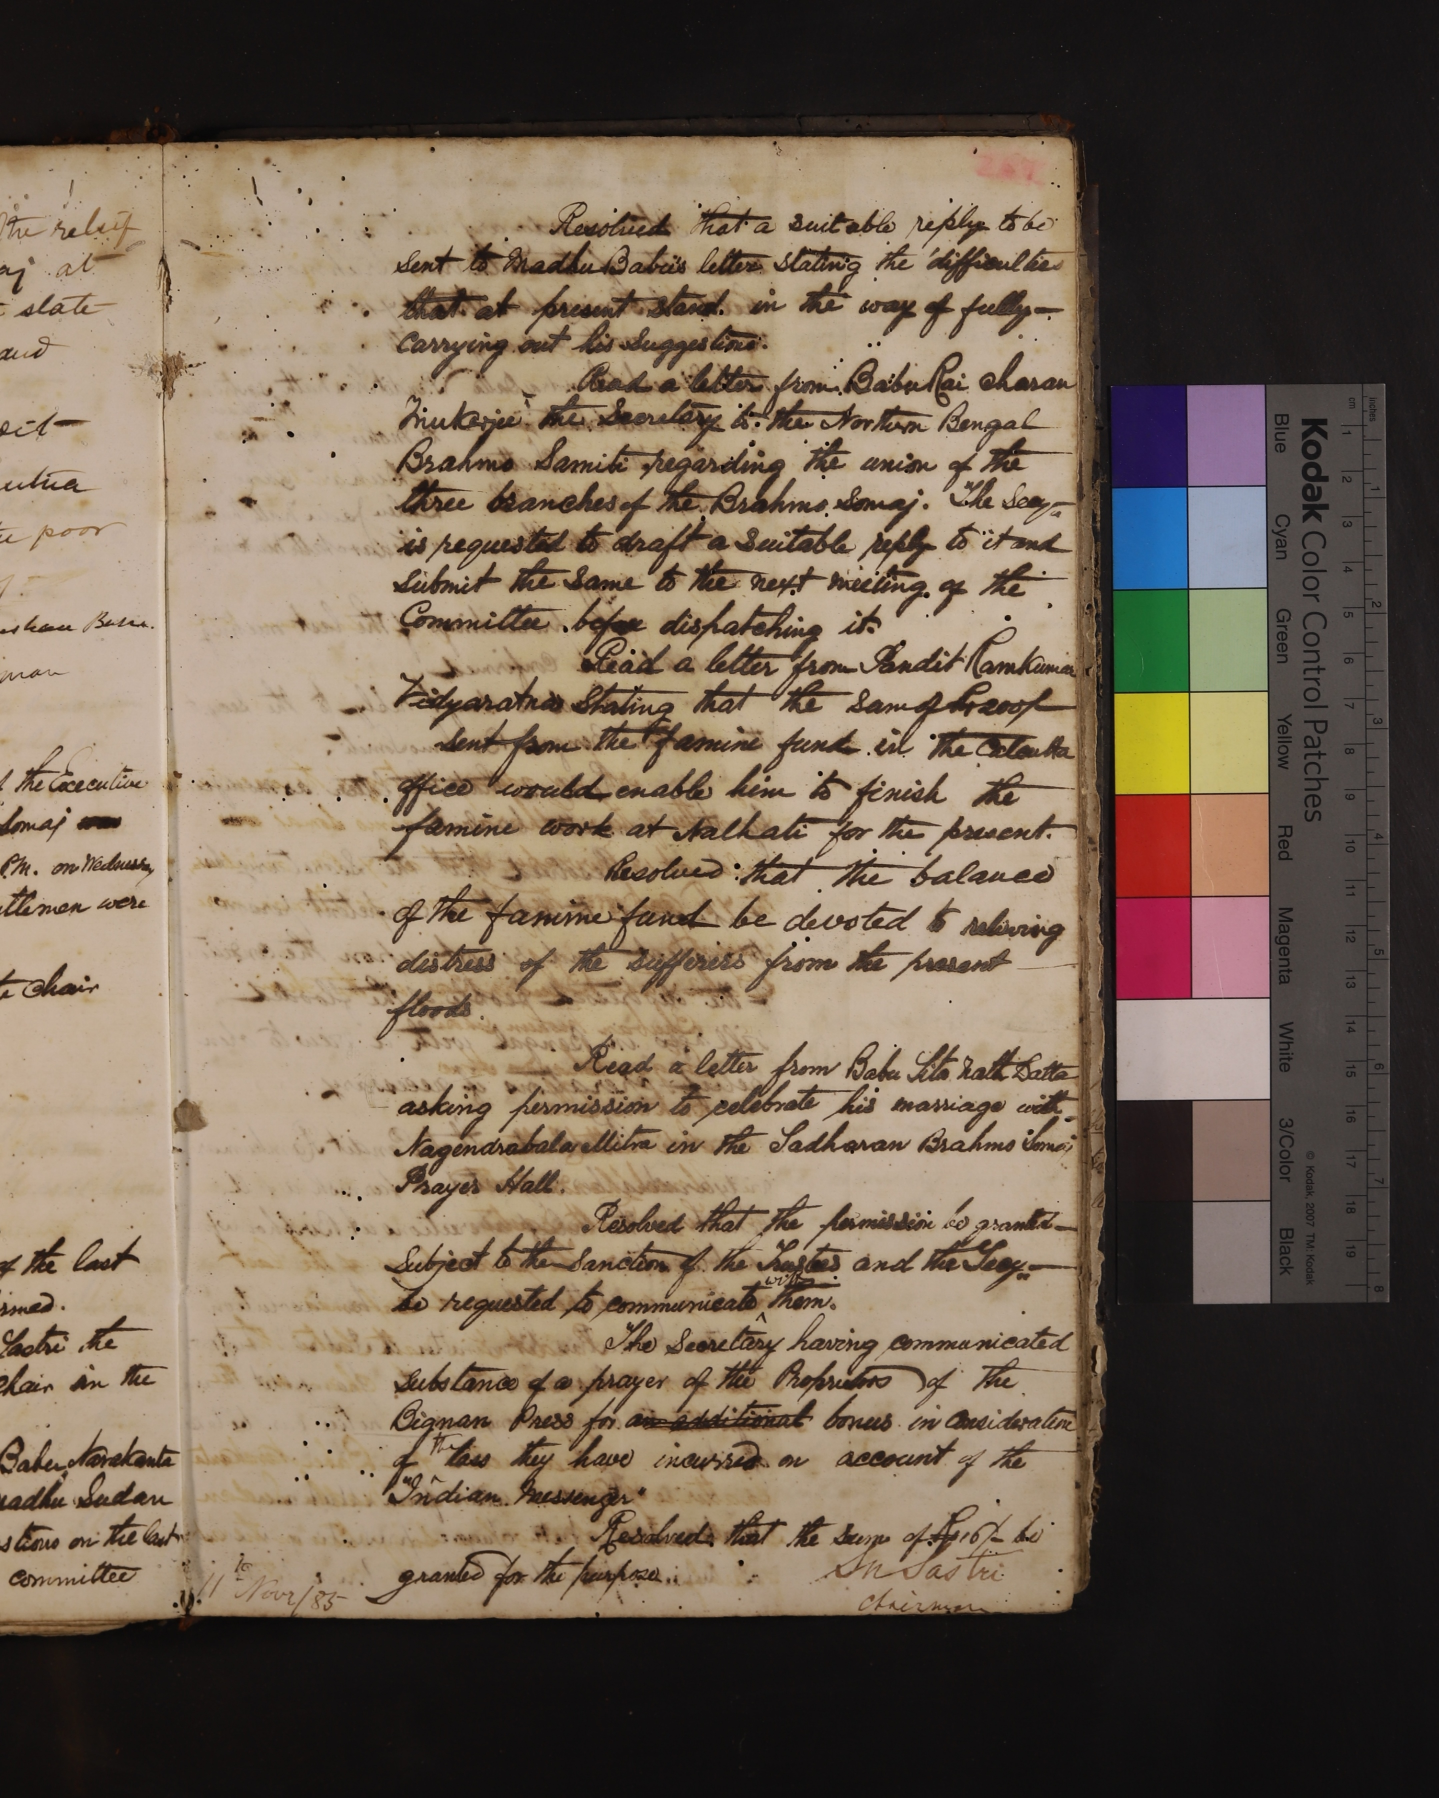 the relief
aj at
state
and
utua
poor
man
the Executive
Somaj
P.M. on Wednesday
ttlemen were
Chair
of the last
irmed.
Sastri the
Chair in the
Babu Narakanta
Madhu Sudan
stions on the last
committee
Resolved that a suitable reply to be
sent to Madhu Babu's letter stating the difficulties
that at present stand in the way of fully
carrying out his suggestions.
Read a letter from Babu Rai Charan
Mukerjee the Secretary to the Northern Bengal
Brahmo Samiti regarding the union of the
three branches of the Brahmo Somaj. The Secy.
is requested to draft a suitable reply to it and
submit the same to the next meeting of the
Committee before dispatching it.
Read a letter from Pandit Ramkumar
Vidyaratna stating that the sum of Rs 200/-
sent from the famine fund in the Calcutta
office would enable him to finish the
famine work at Nalhati for the present.
Resolved that the balance
of the famine fund be devoted to reliving
distress of the sufferers from the present
floods.
Read a letter from Babu Sita Nath Datta
asking permission to celebrate his marriage with
Nagendrabala Mitra in the Sadharan Brahmo Somaj
Prayer Hall.
Resolved that the permission be granted
subject to the sanction of the Trustees and the Secy.
be requested to communicate with them.
The Secretary having communicated
substance of a prayer of the Proprietors of the
Bignan Press for an additional bonus in consideration
of the loss they have incurred on account of the
"Indian Messenger"
Resolved that the sum of Rs 16/- be
granted for the purpose.
SN Sastri
Chairman
11th Novr/85
Kodak Color Control Patches
Blue Cyan Green Yellow Red Magenta White 3/Color Black
© Kodak, 2007 TM: Kodak
inches 1 2 3 4 5 6 7 8
cm 1 2 3 4 5 6 7 8 9 10 11 12 13 14 15 16 17 18 19